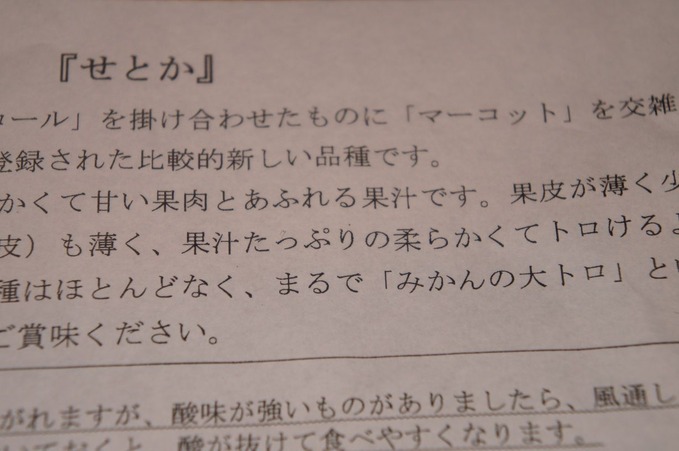 『せとか』
ロール」を掛け合わせたものに「マーコット」を交雑
登録された比較的新しい品種です。
かくて甘い果肉とあふれる果汁です。果皮が薄く少
皮）も薄く、果汁たっぷりの柔らかくてトロけるよ
種はほとんどなく、まるで「みかんの大トロ」と
ご賞味ください。
がれますが、酸味が強いものがありましたら、風通し
いておくと、酸が抜けて食べやすくなります。